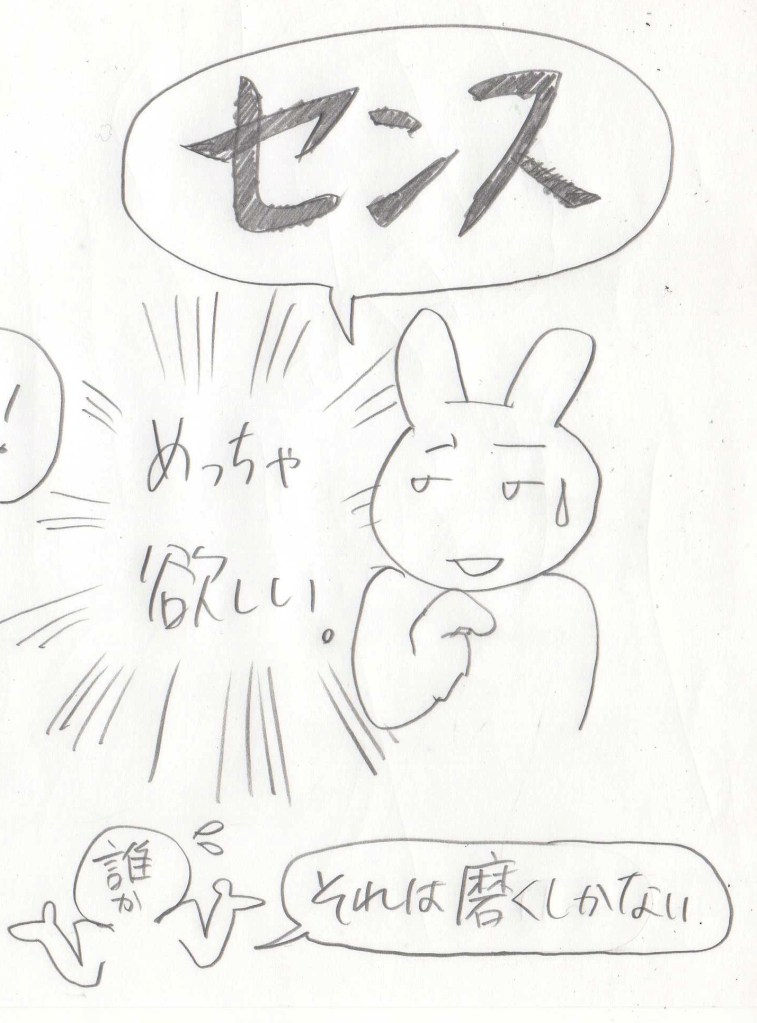 センス
めっちゃ
欲しい。
誰
か
それは磨くしかない